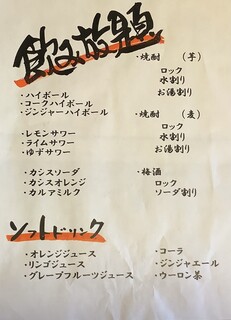 飲み放題
・ハイボール
・コークハイボール
・ジンジャーハイボール
・レモンサワー
・ライムサワー
・ゆずサワー
・カシスソーダ
・カシスオレンジ
・カルアミルク
・焼酎（芋）
ロック
水割り
お湯割り
・焼酎（麦）
ロック
水割り
お湯割り
・梅酒
ロック
ソーダ割り
ソフトドリンク
・オレンジジュース
・リンゴジュース
・グレープフルーツジュース
・コーラ
・ジンジャエール
・ウーロン茶